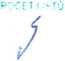 POČET LISTŮ
5